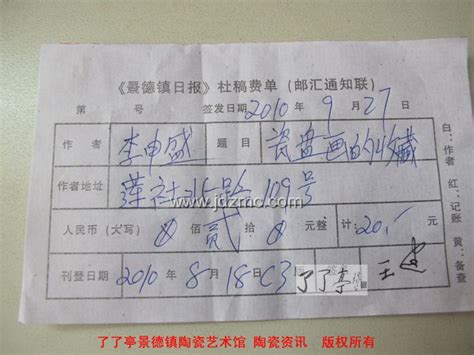 《景德镇日报》社稿费单（邮汇通知联）
第 号 签发日期 2010 年 9 月 27
作者 李申盛 题目 瓷盘画的收藏
作者地址 莲社北路 109号
人民币（大写） 0 佰 贰 拾 0 元整 计：20.-
刊登日期 2010 年 8 月 18 C3 了了亭 王建
白：作者 红：记账 黄：备查
www.jdzmc.com
了了亭景德镇陶瓷艺术馆 陶瓷资讯 版权所有